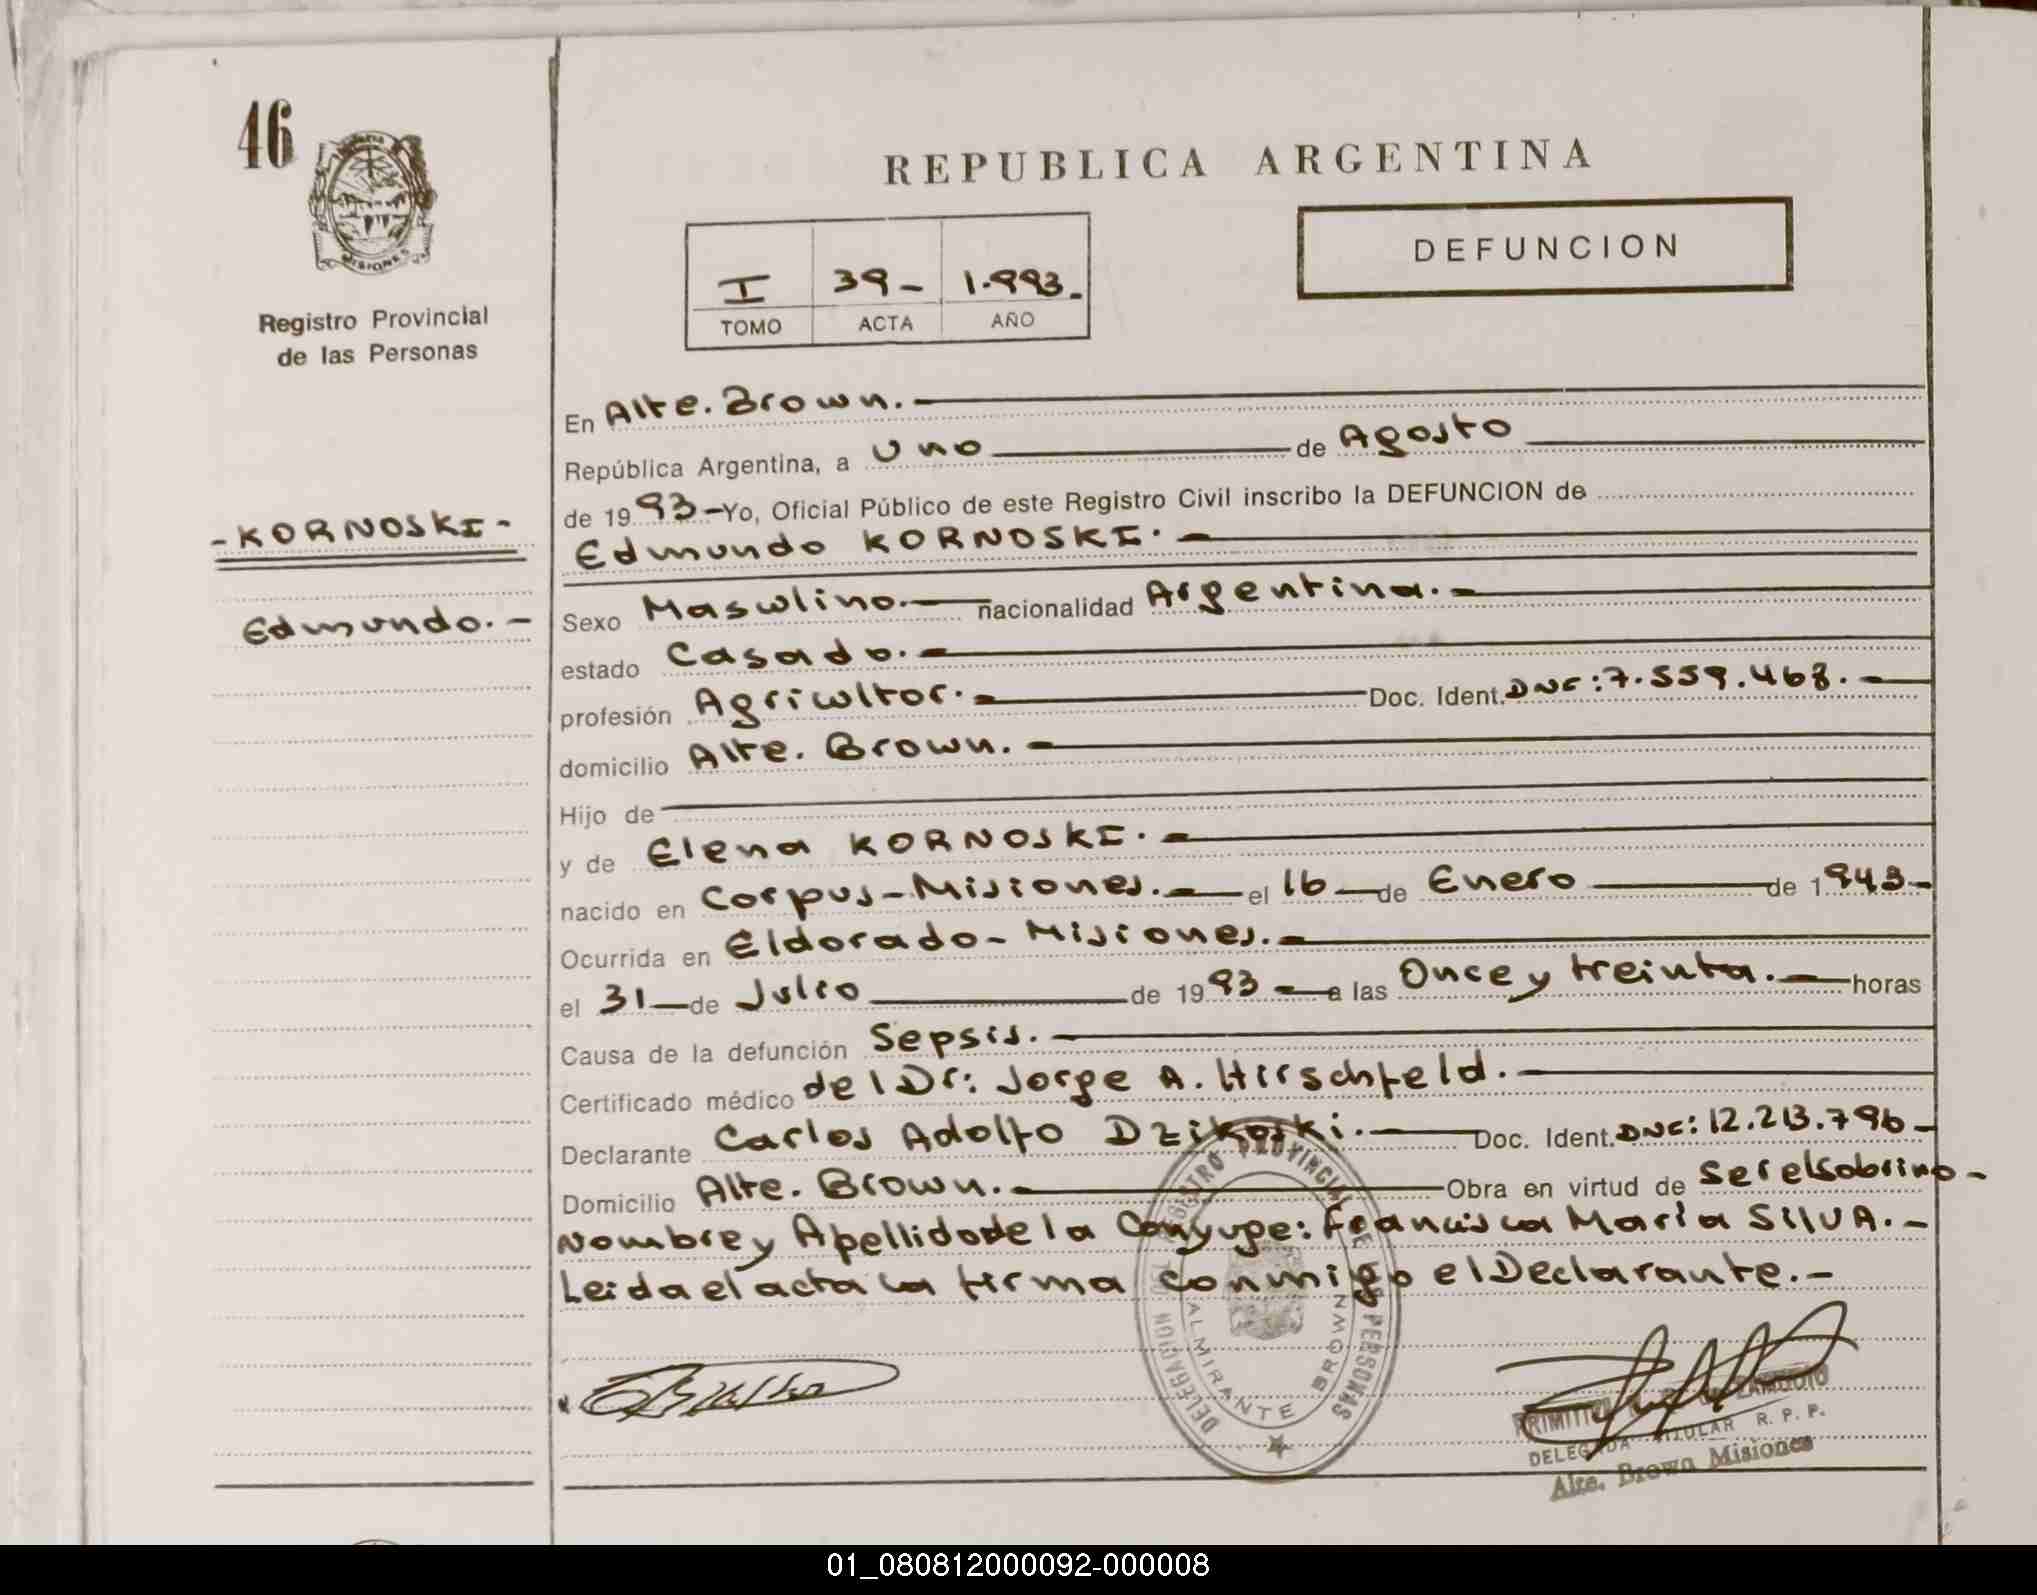 46
MISIONES
Registro Provincial
de las Personas
- KORNOSKI -
Edmundo. -
REPUBLICA ARGENTINA
DEFUNCION
I 39 - 1.993. -
TOMO ACTA AÑO
En Alte. Brown. -
República Argentina, a Uno de Agosto
de 1993 - Yo, Oficial Público de este Registro Civil inscribo la DEFUNCION de
Edmundo KORNOSKI. -
Sexo Masculino. - nacionalidad Argentina. -
estado Casado. -
profesión Agricultor. - Doc. Ident. DNI: 7.559.468. -
domicilio Alte. Brown. -
Hijo de
y de Elena KORNOSKI. -
nacido en Corpus - Misiones. - el 16 - de Enero de 1943 -
Ocurrida en Eldorado - Misiones. -
el 31 - de Julio de 1993 - a las Once y treinta. - horas
Causa de la defunción Sepsis. -
Certificado médico del Dr: Jorge A. Hirschfeld. -
Declarante Carlos Adolfo Dzikoski. - Doc. Ident. DNI: 12.213.796 -
Domicilio Alte. Brown. - Obra en virtud de Ser el Sobrino -
Nombre y Apellido de la Conyuge: Francisca Maria SILVA. -
Leida el acta la firma conmigo el Declarante. -
DELEGACION REGISTRO PROVINCIAL DE LAS PERSONAS
ALMIRANTE BROWN
ZAMUDIO
DELEGADA TITULAR R. P. P.
Alte. Brown Misiones
01_080812000092-000008